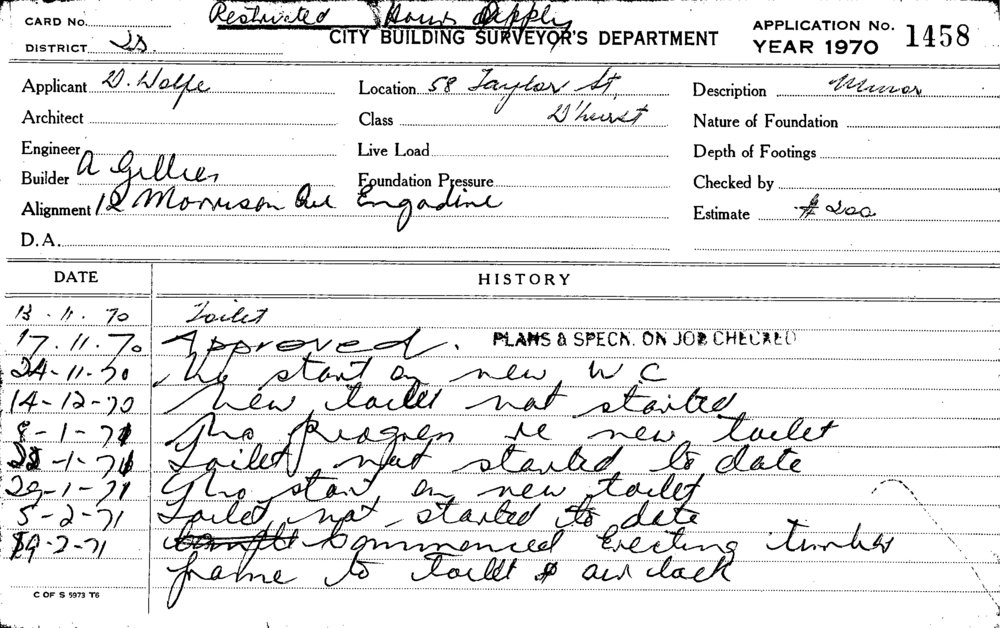 Restricted Hours Apply
CARD No.
CITY BUILDING SURVEYOR'S DEPARTMENT
APPLICATION No. 1458
DISTRICT
YEAR 1970
Applicant D. Wolfe
Location 58 Taylor St,
Description Minor
Architect
Class D'hurst
Nature of Foundation
Engineer
Live Load
Depth of Footings
Builder A Gillies
Foundation Pressure
Checked by
Alignment 12 Morrison Ave Engadine
Estimate $200
D.A.
DATE HISTORY
13.11.70 Toilet
17.11.70 Approved. PLANS & SPECN. ON JOB CHECKED
24-11-70 No start on new W.C
14-12-70 New toilet not started
8-1-71 No progress re new toilet
22-1-71 Toilet not started to date
29-1-71 No start on new toilet
5-2-71 Toilet not started to date
19-2-71 Commenced Erecting timber
frame to toilet & air lock
C OF S 5973 T6